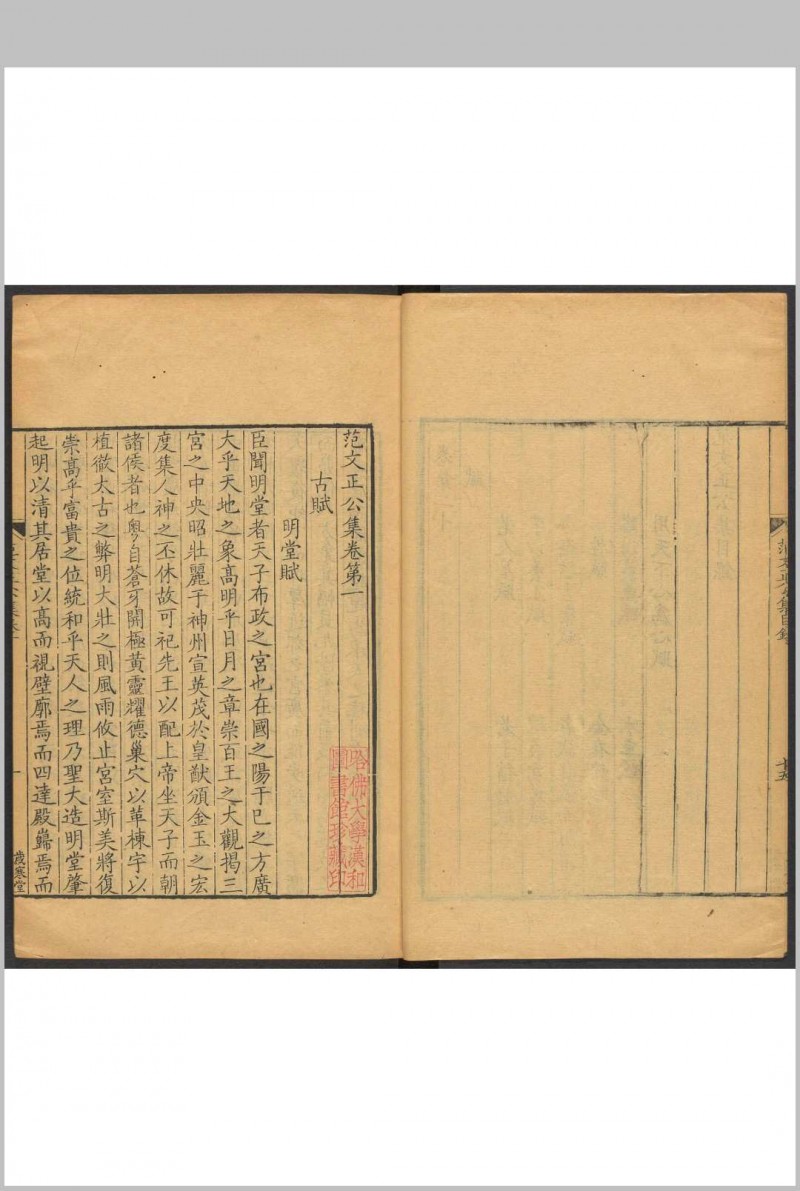 范文正公集目錄
十五
范文正公集卷第一
古賦
明堂賦
臣聞明堂者天子布政之宮也在國之陽于巳之方廣
大乎天地之象高明乎日月之章崇百王之大觀揭三
宮之中央昭壯麗于神州宣英茂於皇猷頒金玉之宏
度集人神之丕休故可祀先王以配上帝坐天子而朝
諸侯者也粵自蒼牙開極黃靈耀德巢穴以革棟宇以
植徹太古之弊明大壯之則風雨攸止宮室斯美將復
崇高乎富貴之位統和乎天人之理乃聖大造明堂肇
起明以清其居堂以高而視壁廓焉而四達殿巋焉而
一
歲寒堂
哈佛大學漢和
圖書館珍藏印